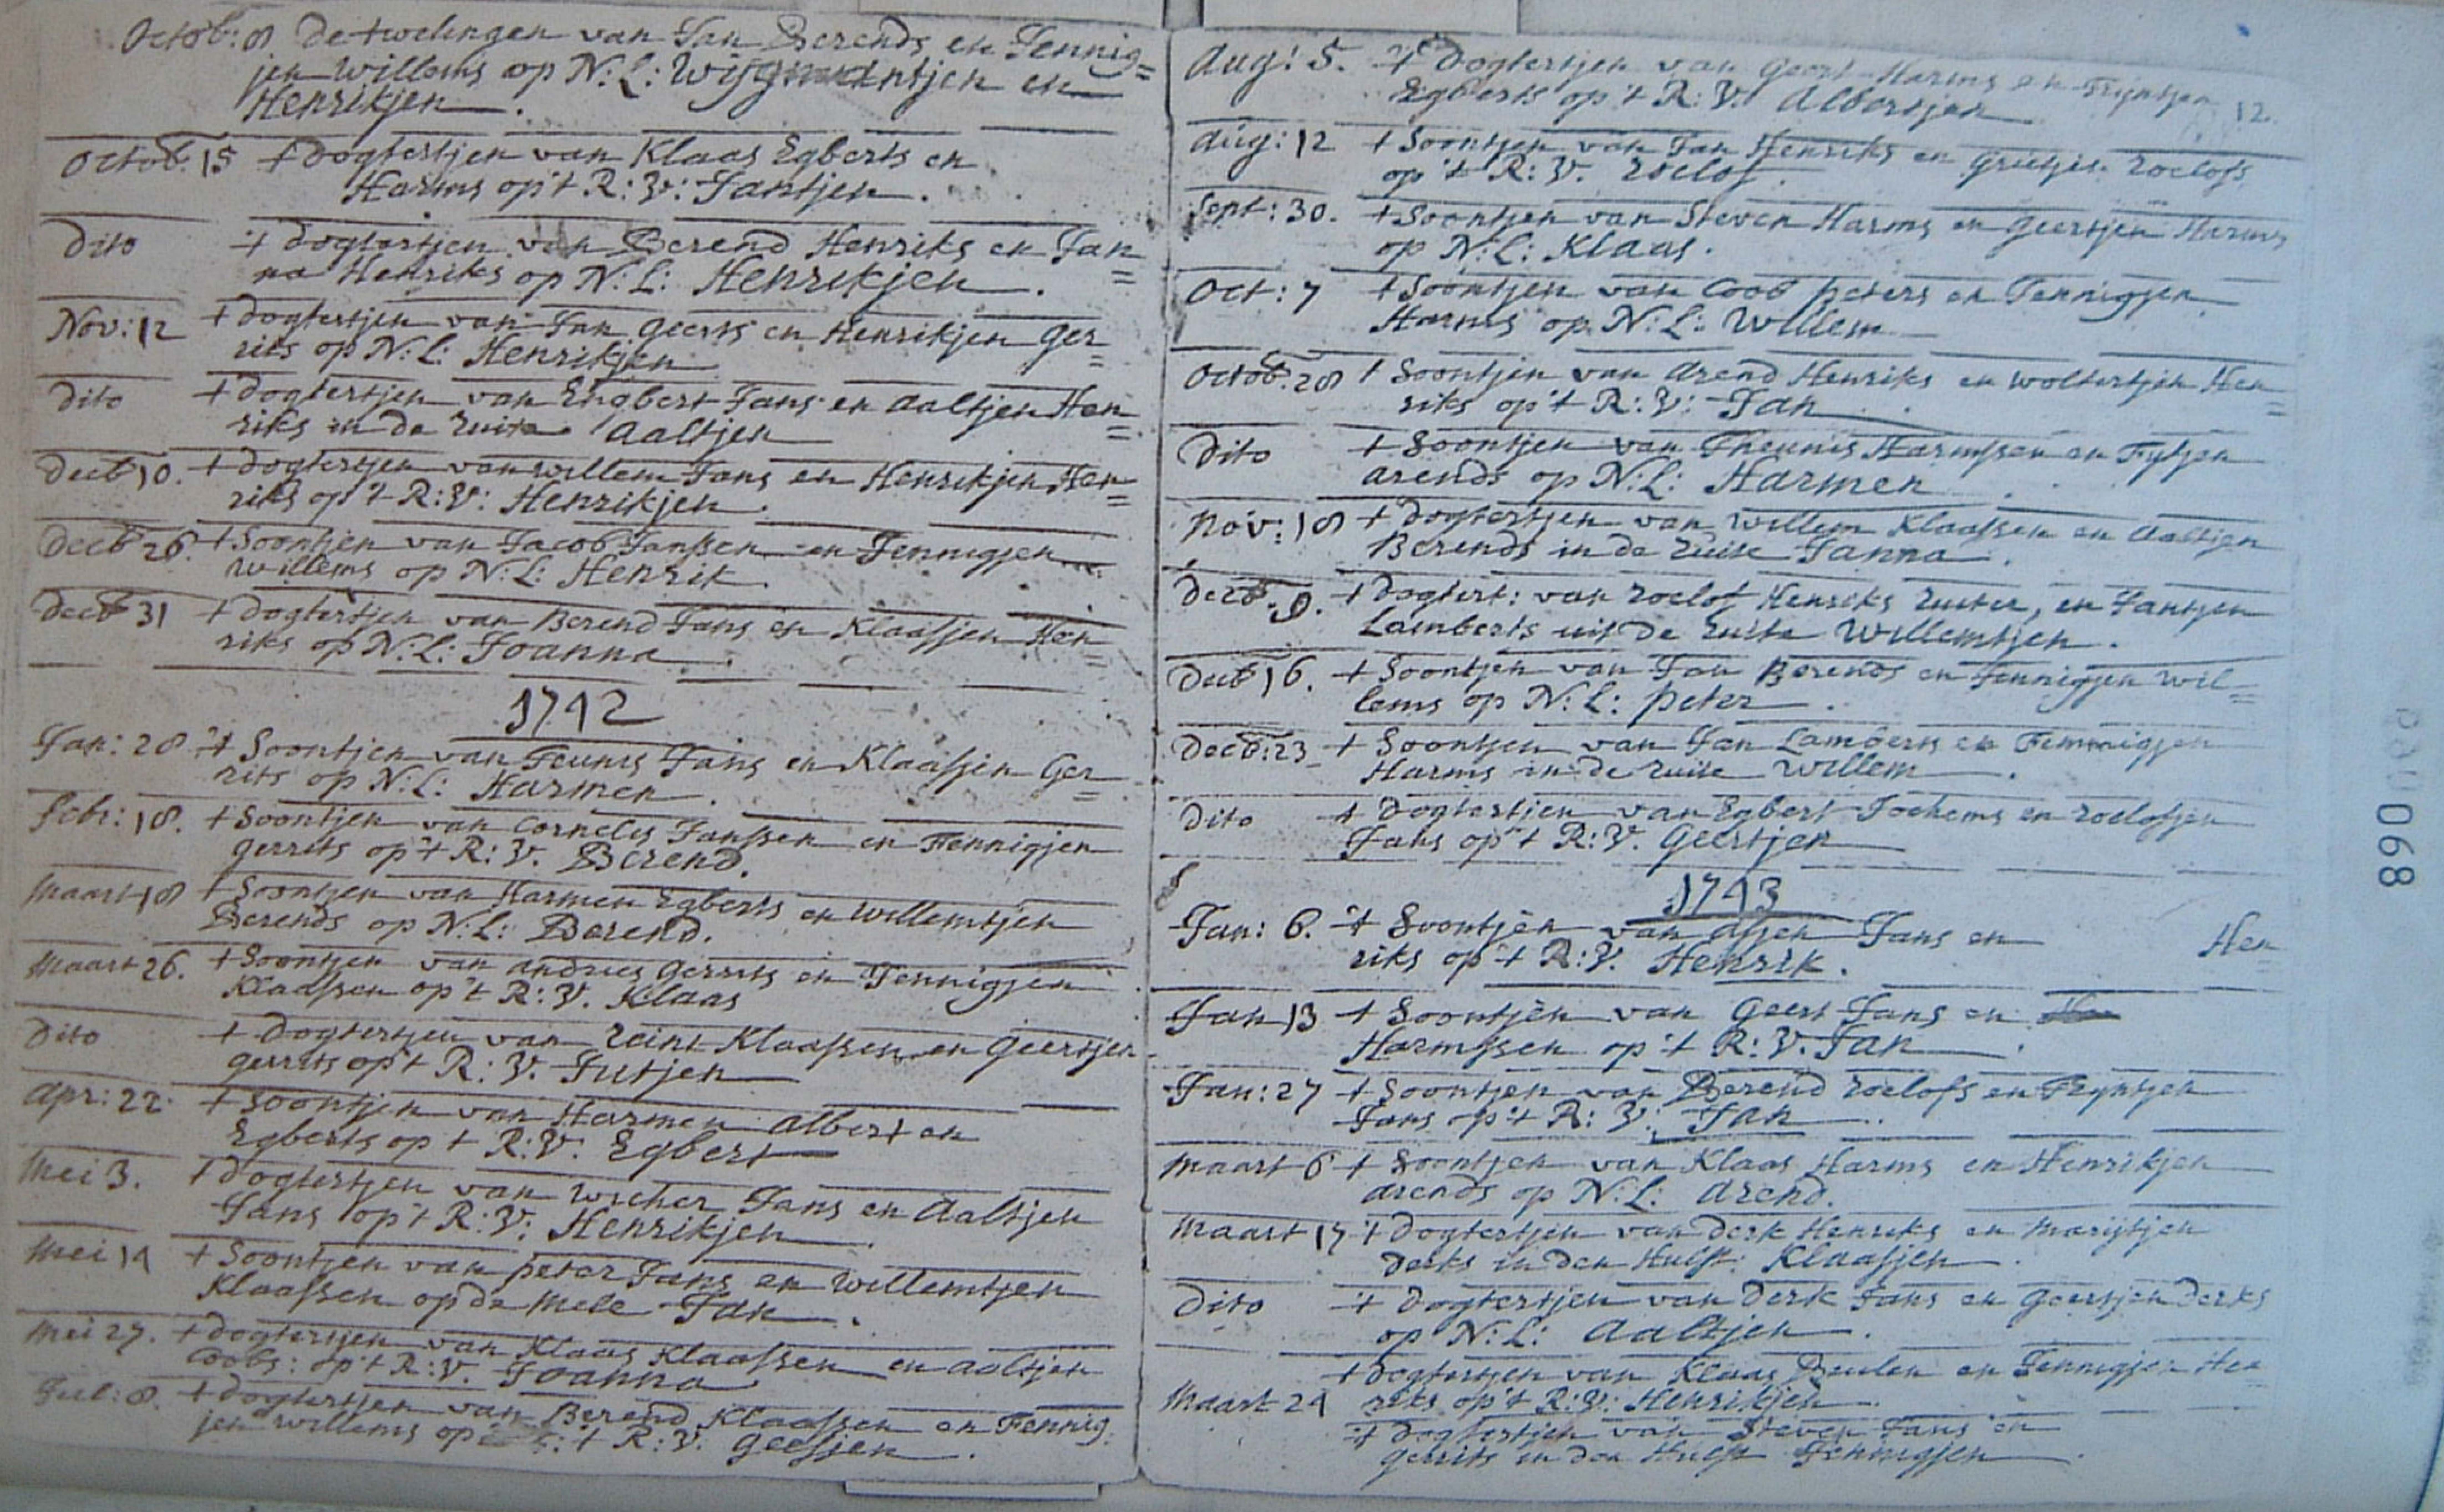 Octob: 8 De twelingen van Jan Berends en Fennig=
jen Willems op N: L: en
Henrikjen.
Octob. 15 't Dogtertjen van Klaas Egberts en
Harms op 't R: V: Jantjen.
Dito 't Dogtertjen van Berend Henriks en Jan=
na Henriks op N: L: Henrikjen.
Nov: 12 't Dogtertjen van Jan Geerts en Henrikjen Ger=
rits op N: L: Henrikjen
Dito 't Dogtertjen van Engbert Jans en Aaltjen Hen=
riks in de Ruite Aaltjen
Decb 10. 't Dogtertjen van Willem Jans en Henrikjen Hen=
riks op 't R: V: Henrikjen.
Decb 26. 't Soontjen van Jacob Janssen en Fennigjen
Willems op N: L: Henrik.
Decb 31 't Dogtertjen van Berend Jans en Klaasjen Hen=
riks op N: L: Joanna.
1742
Jan: 28 't Soontjen van Teunis Jans en Klaasjen Ger=
rits op N: L: Harmen.
Febr: 18. 't Soontjen van Cornelis Janssen en Fennigjen
Gerrits op 't R: V. Berend.
Maart 18 't Soontjen van Harmen Egberts en Willemtjen
Berends op N: L: Berend.
Maart 26. 't Soontjen van Andries Gerrits en Fennigjen
Klaassen op 't R: V. Klaas
Dito 't Dogtertjen van Reint Klaassen en Geertjen
Gerrits op 't R: V. Jutjen
Apr: 22. 't Soontjen van Harmen Albert en
Egberts op 't R: V: Egbert
Mei 3. 't Dogtertjen van Wicher Jans en Aaltjen
Jans op 't R: V: Henrikjen
Mei 14 't Soontjen van Peter Jans en Willemtjen
Klaassen op de Mele Jan.
Mei 27. 't Dogtertjen van Klaas Klaassen en Aaltjen
Coobs: op 't R: V. Joanna
Jul: 8. 't Dogtertjen van Berend Klaassen en Fennig
jen Willems op 't R: V. Geesjen.
Aug: 5. 't Dogtertjen van Geert Harms en Trijntjen
Egberts op 't R: V: Albertjen
12.
Aug: 12 't Soontjen van Jan Henriks en Grietjen Roelofs
op 't R: V. Roelof.
Sept: 30. 't Soontjen van Steven Harms en Geertjen Harms
op N: L: Klaas.
Oct: 7 't Soontjen van Coob Peters en Fennigjen
Harms op N: L: Willem
Octob. 28 't Soontjen van Arend Henriks en Woltertjen Hen=
riks op 't R: V: Jan.
Dito 't Soontjen van Theunis Harmssen en Fytjen
Arends op N: L: Harmen
Nov: 18 't Dogtertjen van Willem Klaassen en Aaltjen
Berends in de Ruite Janna.
Decb. 9. 't Dogtert: van Roelof Henriks Ruiter, en Jantjen
Lamberts uit de Ruite Willemtjen.
Decb 16. 't Soontjen van Jan Berends en Fennigjen Wil=
lems op N: L: Peter.
Decb: 23 't Soontjen van Jan Lamberts en Femmigjen
Harms in de Ruite Willem.
Dito 't Dogtertjen van Egbert Jochems en Roelofjen
Jans op 't R: V. Geertjen
1743
Jan: 6. 't Soontjen van Assjen Jans en Hen=
riks op 't R: V. Henrik.
Jan 13 't Soontjen van Geert Jans en
Harmssen op 't R: V. Jan.
Jan: 27 't Soontjen van Berend Roelofs en Tryntjen
Jans op 't R: V: Jan.
Maart 6 't Soontjen van Klaas Harms en Henrikjen
Arends op N: L: Arend.
Maart 17 't Dogtertjen van Derk Henriks en Marijtjen
Derks in den Hulst Klaasjen.
Dito 't Dogtertjen van Derk Jans en Geertjen Derks
op N: L: Aaltjen.
't Dogtertjen van Klaas Beulen en Fennigjen Hen=
Maart 24 riks op 't R: V: Henrikjen.
't Dogtertjen van Steven Jans en
Gerrits in den Hulst Fennigjen.
068